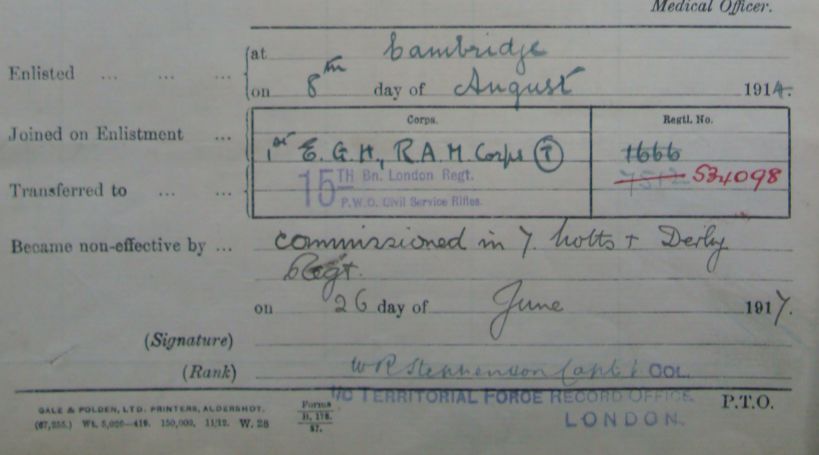 Medical Officer.
at Cambridge
Enlisted ... ... ...
on 8th day of August 1914.
Corps. Regtl. No.
Joined on Enlistment ...
1st E. G. H., R.A.M. Corps (T) 1666
15TH Bn. London Regt. 7512 534098
Transferred to ... ...
P.W.O. Civil Service Rifles.
Became non-effective by ... commissioned in 7. Notts + Derby
Regt.
on 26 day of June 1917.
(Signature)
(Rank) W R Stephenson Capt COL.
I/C TERRITORIAL FORCE RECORD OFFICE.
GALE & POLDEN, LTD. PRINTERS, ALDERSHOT. Forms P.T.O.
(67,255.) Wt. 5,000—419. 150,000. 11/12. W. 28 LONDON.